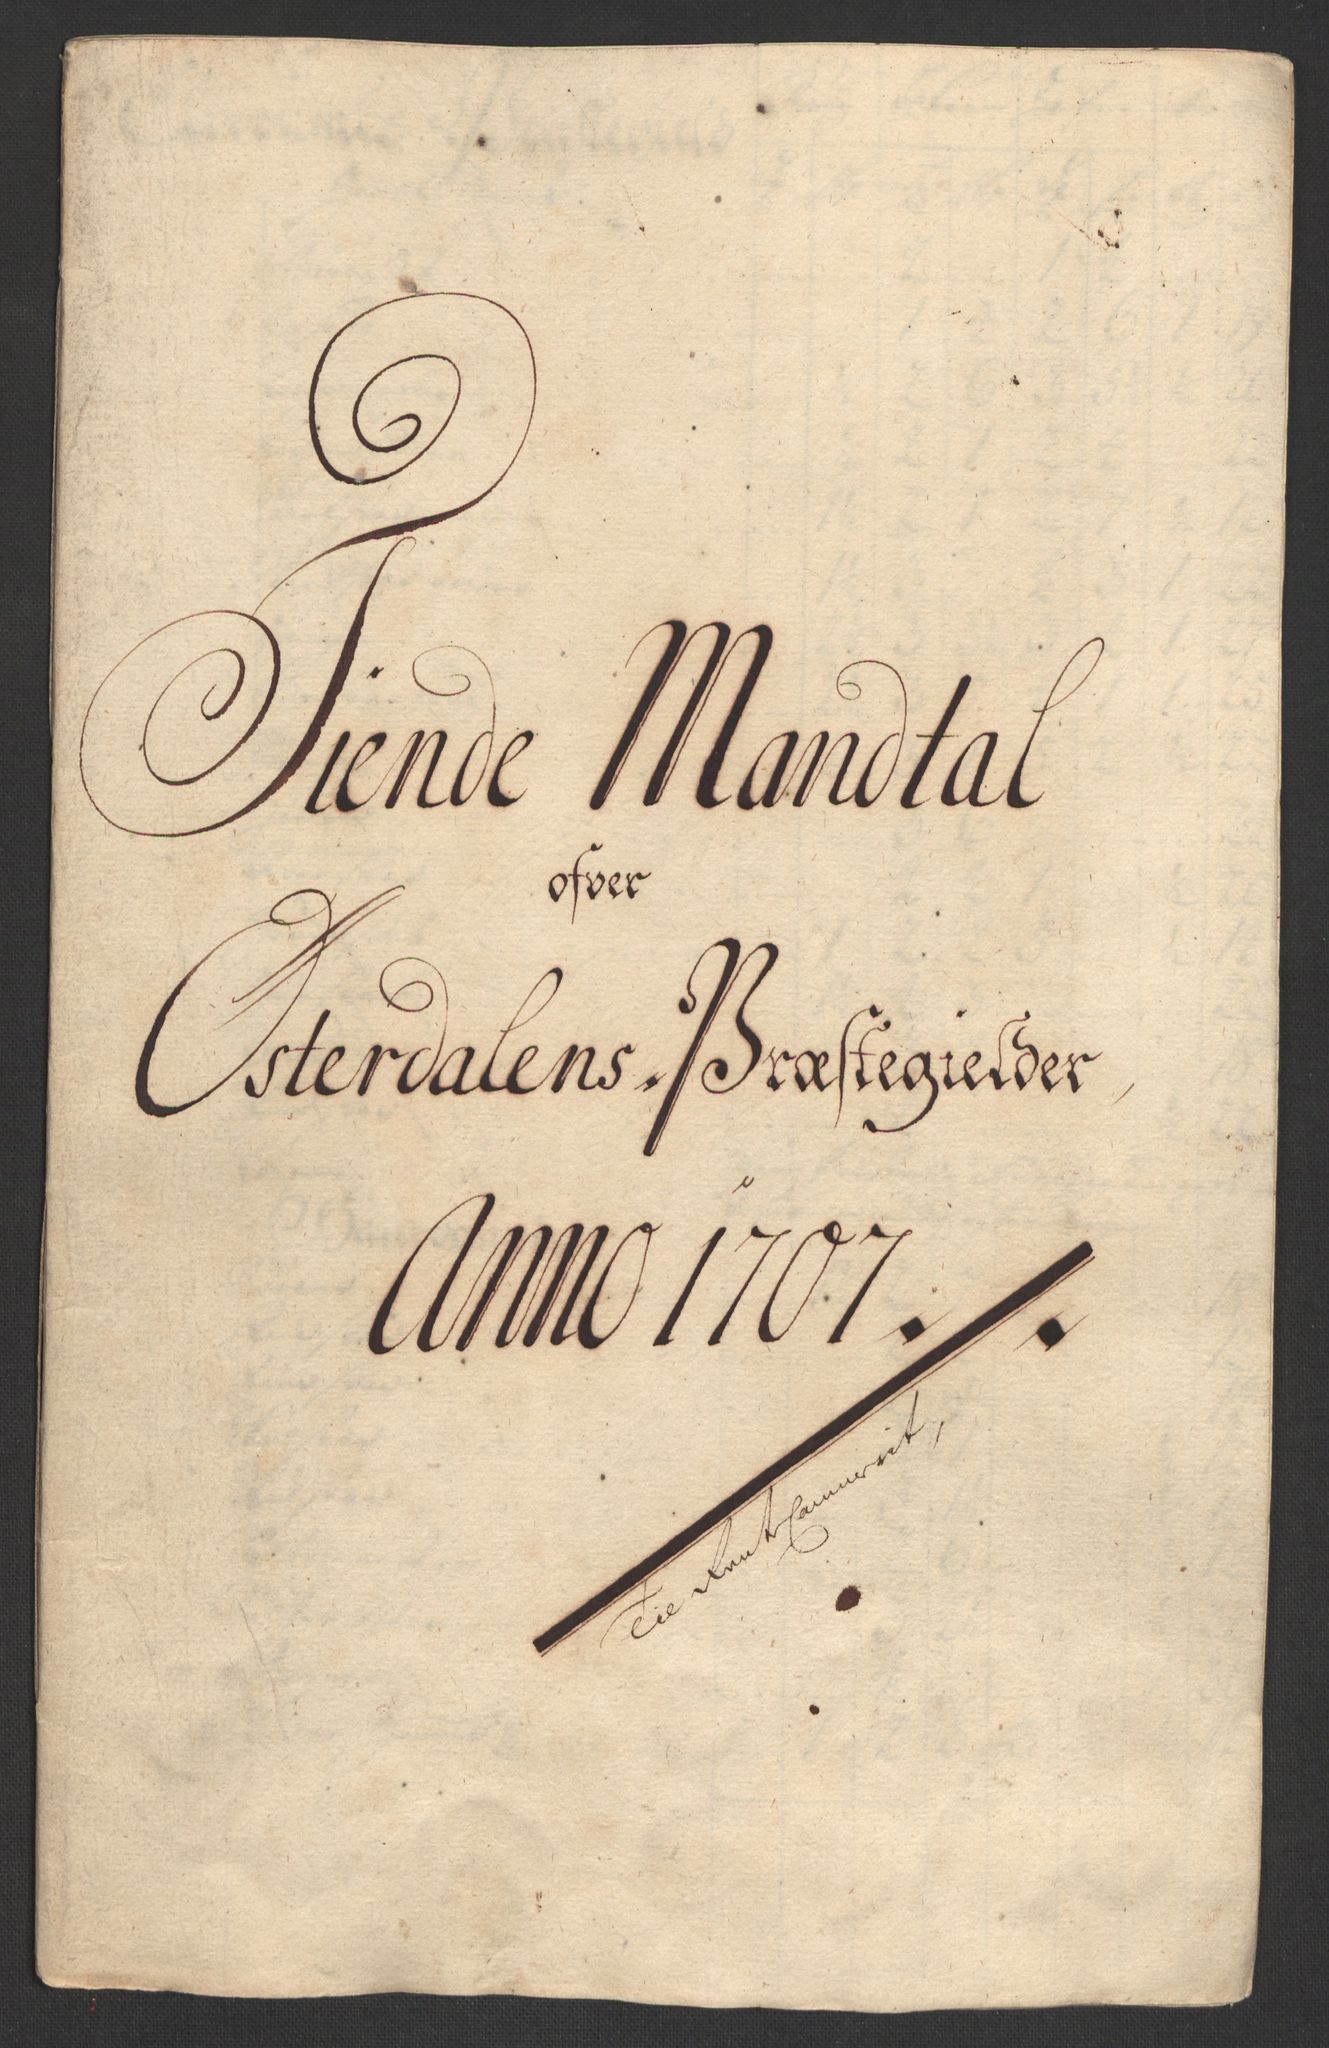 Tiende Mandtal
ofver
Østerdalens Præstegielder,
Anno 1707.
Till Rent Cammerit,